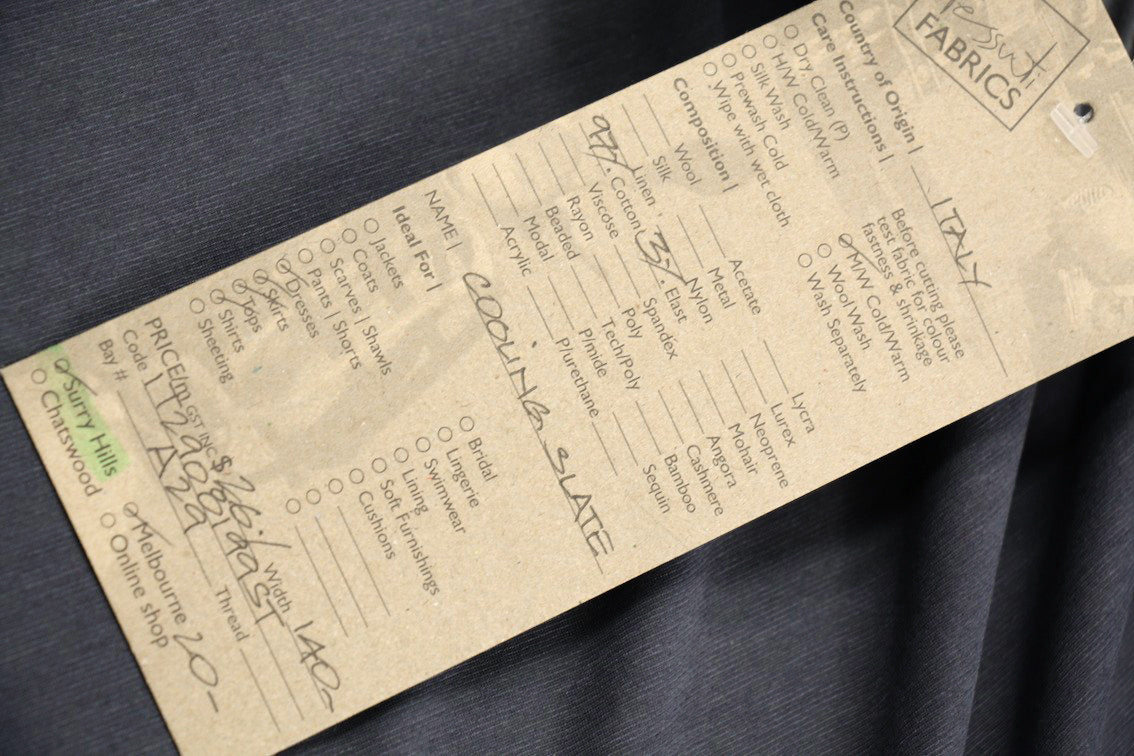 Tessuti
FABRICS
Country of Origin | ITALY
Care Instructions |
Dry. Clean (P)
H/W Cold/Warm
Silk Wash
Prewash Cold
Wipe with wet cloth
Before cutting please
test fabric for colour
fastness & shrinkage
M/W Cold/Warm
Wool Wash
Wash Separately
Composition |
Wool
Silk
Linen
97% Cotton
Viscose
Rayon
Beaded
Modal
Acrylic
Acetate
Metal
Nylon
3% Elast
Spandex
Poly
Tech/Poly
P/mide
P/urethane
Lycra
Lurex
Neoprene
Mohair
Angora
Cashmere
Bamboo
Sequin
NAME | COOLING SLATE
Ideal For |
Jackets
Coats
Scarves | Shawls
Pants | Shorts
Dresses
Skirts
Tops
Shirts
Sheeting
Bridal
Lingerie
Swimwear
Lining
Soft Furnishings
Cushions
PRICE/m GST INC $ Width 140-
Code |
Bay # A29 Thread
Surry Hills
Chatswood
Melbourne 20-
Online shop